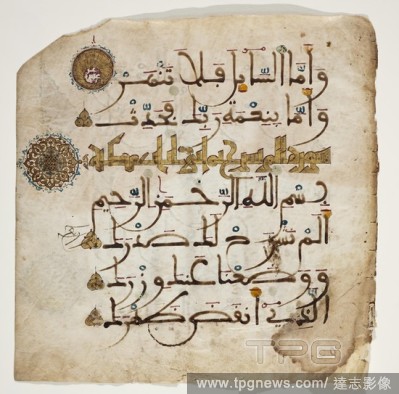 وأما السائل فلا تنهر
وأما بنعمة ربك فحدث
سورة ألم نشرح
بسم الله الرحمن الرحيم
ألم نشرح لك صدرك
ووضعنا عنك وزرك
الذي أنقض ظهرك
TPG
www.tpgnews.com/ 達志影像